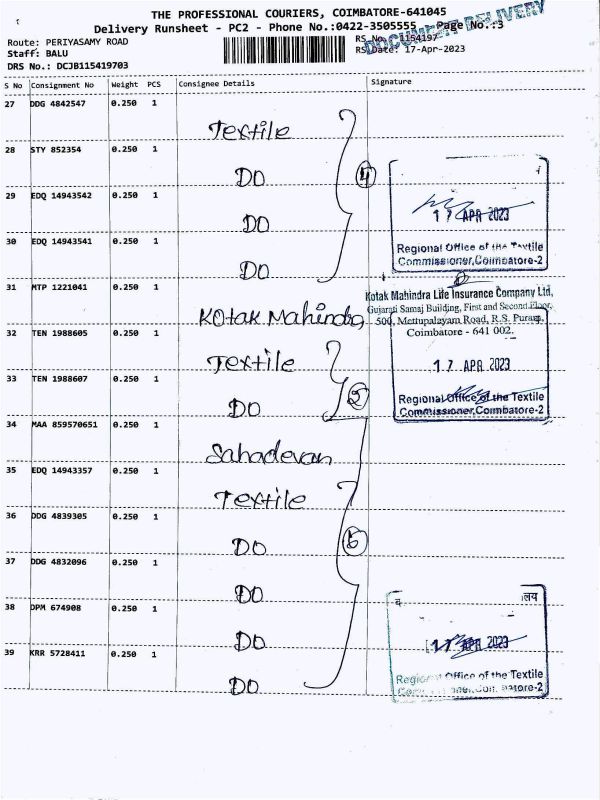 THE PROFESSIONAL COURIERS, COIMBATORE-641045
Delivery Runsheet - PC2 - Phone No.:0422-3505555 Page No.:3
DOCUMENT DELIVERY
Route: PERIYASAMY ROAD RS No. 1154197
Staff: BALU RS Date: 17-Apr-2023
DRS No.: DCJB115419703
S No Consignment No Weight PCS Consignee Details Signature
27 DDG 4842547 0.250 1
Textile
28 STY 852354 0.250 1
DO 4
29 EDQ 14943542 0.250 1
17 APR 2023
DO
30 EDQ 14943541 0.250 1
Regional Office of the Textile
Commissioner, Coimbatore-2
DO
31 MTP 1221041 0.250 1
Kotak Mahindra Life Insurance Company Ltd,
Gujarati Samaj Building, First and Second Floor,
500, Mettupalayam Road, R.S. Puram,
Coimbatore - 641 002.
Kotak Mahindra
32 TEN 1988605 0.250 1
Textile
17 APR 2023
33 TEN 1988607 0.250 1
DO 2
Regional Office of the Textile
Commissioner, Coimbatore-2
34 MAA 859570651 0.250 1
Sahadevan
35 EDQ 14943357 0.250 1
Textile
36 DDG 4839305 0.250 1
DO
37 DDG 4832096 0.250 1
DO
38 DPM 674908 0.250 1
लय
DO
17 APR 2023
39 KRR 5728411 0.250 1
Regional Office of the Textile
DO